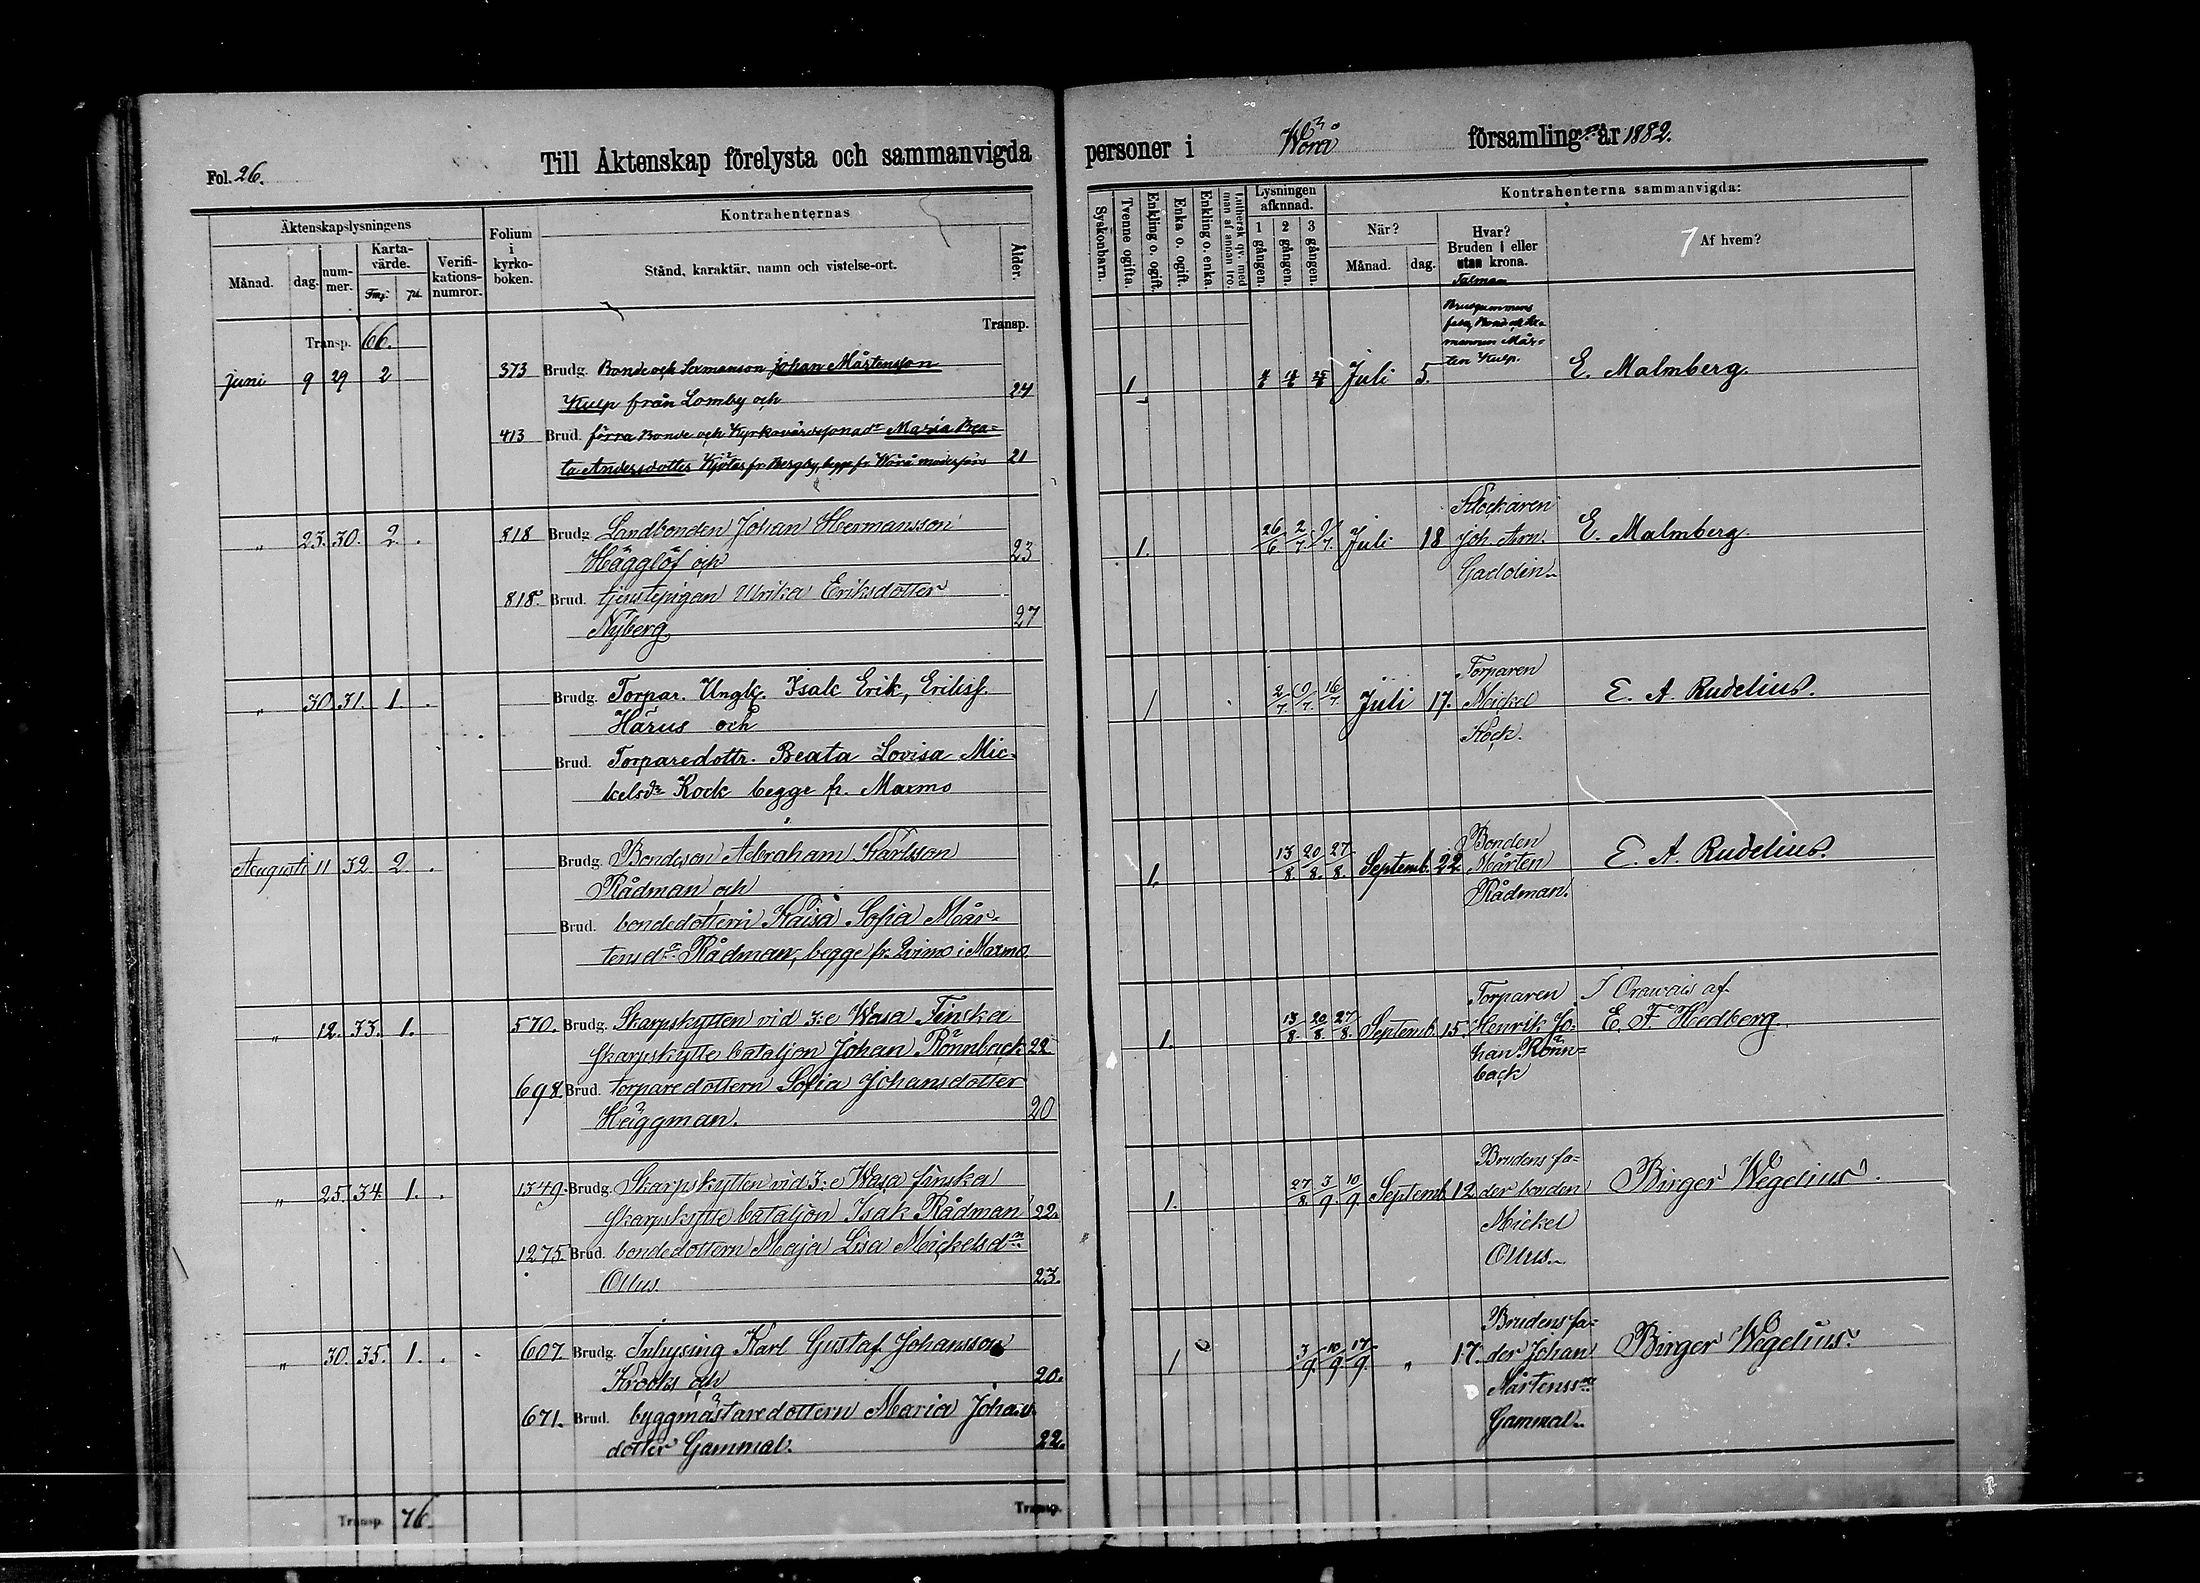 Fol. 26.
Till Äktenskap förelysta och sammanvigda
personer i Wörå församling år 1882.
Äktenskapslysningens
Folium i kyrko-boken.
Kontrahenternas
Månad. dag. num-mer. Karta-värde. Fmk. pi. Verifi-kations-numror.
Stånd, karaktär, namn och vistelse-ort.
Ålder.
Syskonbarn. Tvenne ogifta. Enkling o. ogift. Enka o. ogift. Enkling o. enka. Luthersk qv. med man af annan tro.
Lysningen afkunnad.
1 gången. 2 gången. 3 gången.
Kontrahenterna sammanvigda:
När?
Månad. dag.
Hvar? Bruden i eller utan krona.
Af hvem?
Transp. 66.
Transp.
Juni 9 29 2 373 Brudg. Bonde och Sexmanson Johan Mårtensson
Kulp från Lomby och 24
413 Brud. förra Bonde och Kyrkovärdssonadr Maria Bea-
ta Andersdotter fr Bergby, begge fr Wörå moderförs 21
1 Juli 5.
Brudgummens
fader, Bond och Sex-
mannen Mår-
ten Kulp.
E. Malmberg.
" 23. 30. 2. 818 Brudg. Landbonden Johan Hermansson
Hägglöf och 23
818. Brud. tjenstepigan Ulrika Eriksdotter
Nyberg 27
1. 26/6 2/7. 9/7. Juli 18
Klockaren
Joh. Arn.
Gaddin
E. Malmberg.
" 30. 31. 1. Brudg. Torpar. Ungk. Isak Erik, Eriksf.
Härus och
Brud. Torparedottr. Beata Lovisa Mic-
kelsdr Kock begge fr. Maxmo
1 2/7. 9/7. 16/7. Juli 17.
Torparen
Mickel
Kock.
E. A. Rudelius.
Augusti 11 32 2. Brudg. Bondeson Abraham Karlsson
Rådman och
Brud. bondedottern Kaisa Sofia Mår-
tensdr Rådman, begge fr. Qvimo i Maxmo
1. 13/8. 20/8. 27/8. Septemb. 22
Bonden
Mårten
Rådman.
E. A. Rudelius.
" 12. 33. 1. 570. Brudg. Skarpskytten vid 3:e Wasa Finska
Skarpskytte bataljon Johan Rönnback 22
698. Brud. torparedottern Sofia Johansdotter
Häggman. 20
1. 13/8. 20/8. 27/8. Septemb. 15.
Torparen
Henrik Jo-
han Rönn-
back
I Oravais af
E. F. Hedberg.
" 25. 34. 1. 1349. Brudg. Skarpskytten vid 3:e Wasa finska
Skarpskytte bataljon Isak Rådman 22.
1275. Brud. bondedottern Maja Lisa Mickelsdr
Ollus. 23.
1. 27/8. 3/9. 10/9. Septemb. 12
Brudens fa-
der bonden
Mickel
Ollus.
Birger Wegelius.
" 30. 35. 1. 607. Brudg. Inhysing Karl Gustaf Johansson
Krooks och 20.
671. Brud. byggmästaredottern Maria Johans
dotter Gammal. 22.
1 3/9. 10/9. 17/9. " 17.
Brudens fa-
der Johan
Mårtensson
Gammal.
Birger Wegelius.
Transp. 76.
Transp.